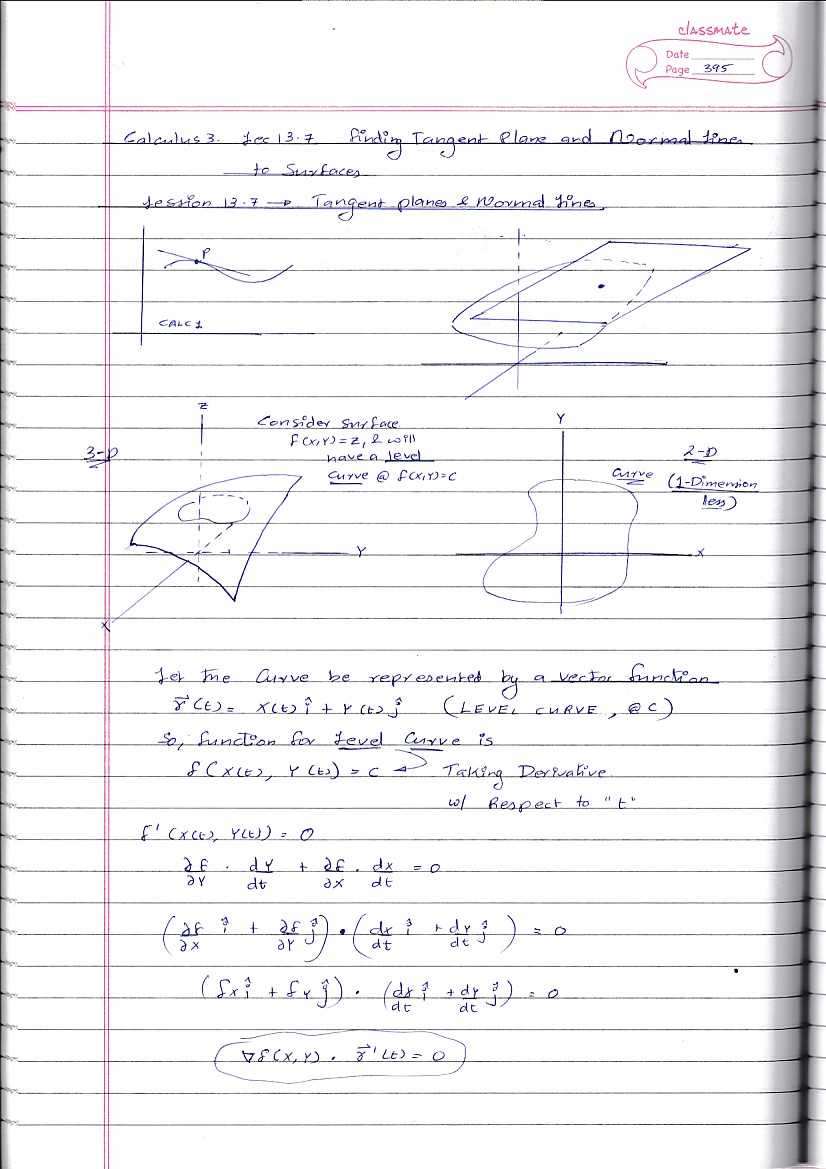 classmate
Date
Page 395
Calculus 3. Lec 13.7 Finding Tangent Plane and Normal Lines
to Surfaces
Session 13.7 → Tangent planes & Normal Lines.
P
CALC 1
Z
Consider Surface
f(x,Y)=Z, & will
have a level
Curve @ f(x,Y)=C
3-D
Y
X
Y
2-D
Curve (1-Dimension
less)
X
Let the Curve be represented by a vector function
r⃗(t) = X(t) î + Y(t) ĵ (LEVEL CURVE, @ C)
So, function for Level Curve is
f(X(t), Y(t)) = C Taking Derivative
w/ Respect to "t"
f'(X(t), Y(t)) = 0
∂f/∂Y · dY/dt + ∂f/∂X · dx/dt = 0
(∂f/∂x î + ∂f/∂Y ĵ) • (dx/dt î + dY/dt ĵ) = 0
(fx î + fY ĵ) · (dx/dt î + dY/dt ĵ) = 0
∇f(X,Y) · r⃗'(t) = 0